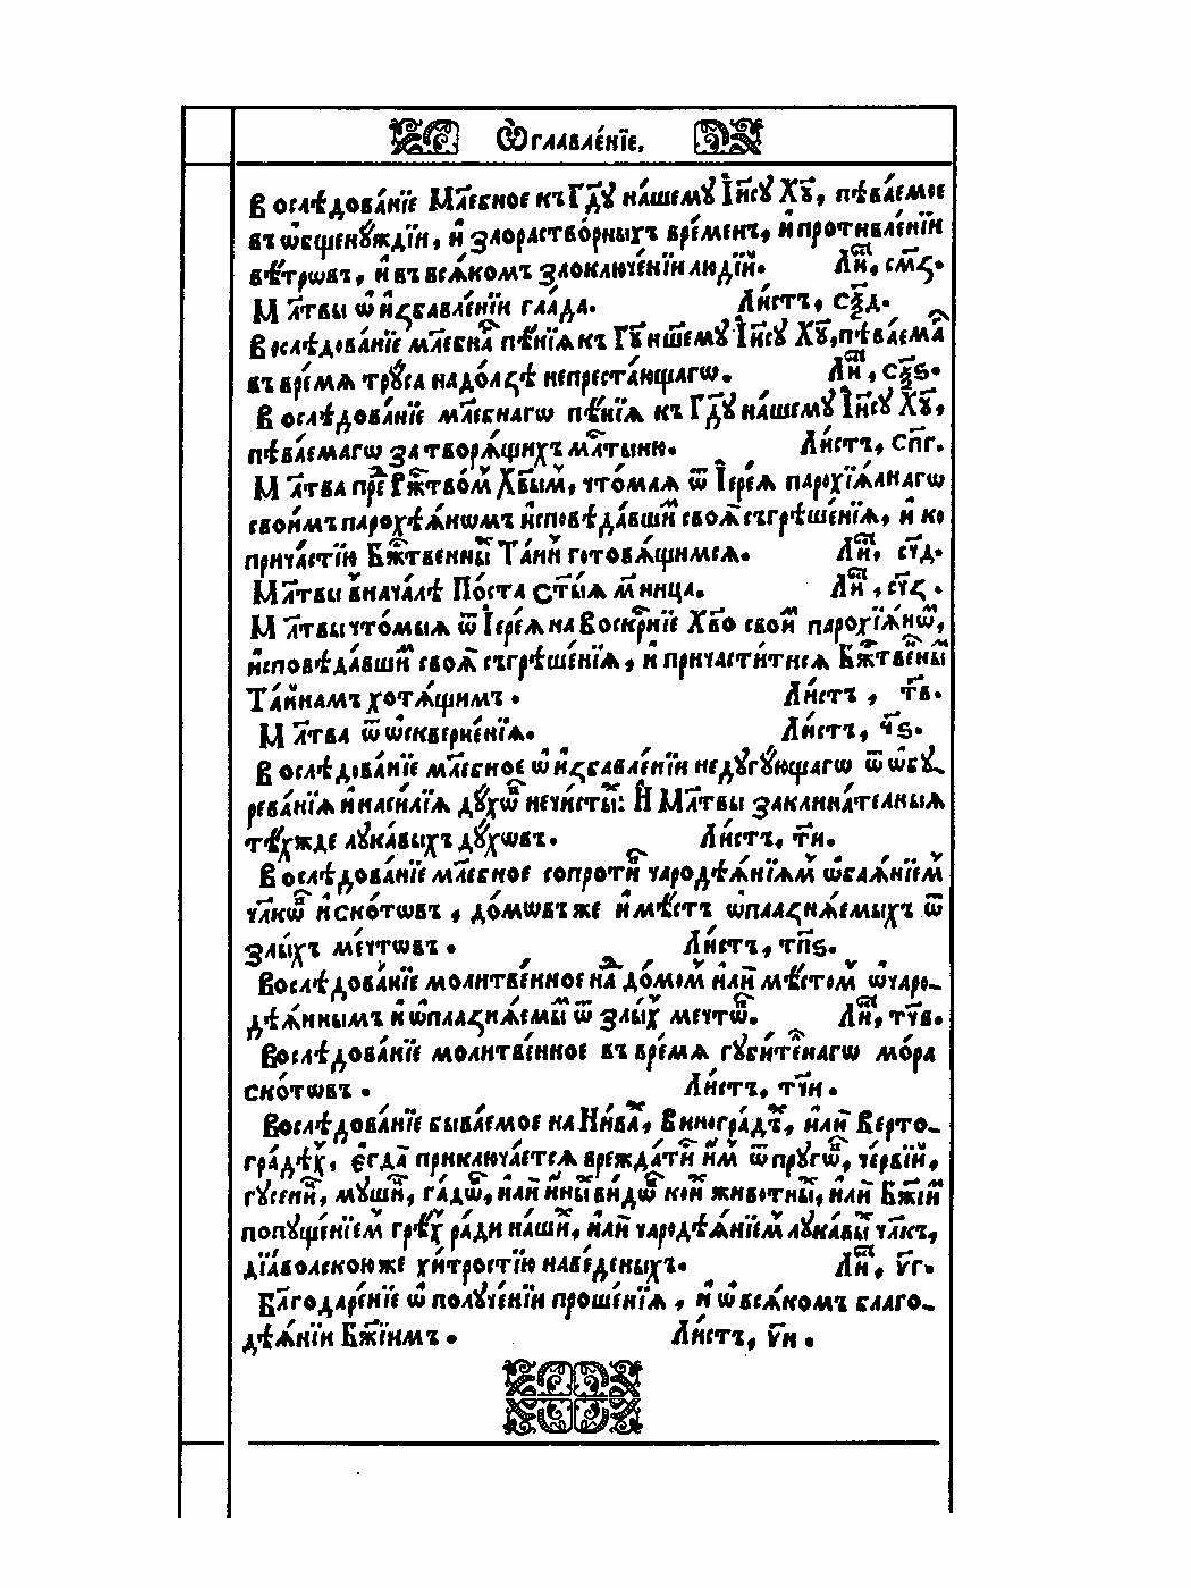 Ѡ҆главле́нїе.
Вослѣ́дова́нїе Мл҃ебное къ Гдⷭ҇ꙋ на́шемꙋ І҆и҃сꙋ Хꙋ҃, пѣва́емое
въ ѡ҆бщенꙋ́ждїи, и҆ злораство́рныхъ вре́менъ, и҆ противле́нїи
вѣ́трѡвъ, и҆ въ всѧ́комъ злоключе́нїи люді́й. Лиⷭ҇, см҃з.
Мл҃твы ѡ҆ и҆збавле́нїи гла́да. Ли́стъ, сѯ҃д.
Вослѣ́дова́нїе мл҃ебнаⷢ҇ пѣ́нїѧ къ Гдⷭ҇ꙋ нш҃емꙋ І҆и҃сꙋ Хꙋ҃, пѣва́емаⷢ҇
въ вре́мѧ трꙋ́са надо́лзѣ непреста́нщагѡ. Лиⷭ҇, сѯ҃ѕ.
Вослѣ́дова́нїе мл҃ебнагѡ пѣ́нїѧ къ Гдⷭ҇ꙋ на́шемꙋ І҆и҃сꙋ Хꙋ҃,
пѣва́емагѡ за творѧ́щихъ млⷭ҇тыню. Ли́стъ, сп҃г.
Мл҃тва преⷣ Ржⷭ҇тво́мъ Хв҃ымъ, что́маѧ ѿ І҆ере́ѧ парохїѧ́лнагѡ
свои́мъ парохѣѧ́нѡмъ и҆сповѣ́давшиⷨ своѧ̑ съгрѣше́нїѧ, и҆ ко
прича́стїю Бж҃твенныⷯ Та́инъ гото́вѧщимсѧ. Лиⷭ҇, сч҃д.
Мл҃твы внача́лѣ По́ста ст҃ы́ѧ м҃ница. Лиⷭ҇, сч҃з.
Мл҃твы что́мыѧ ѿ І҆ере́ѧ на Воскрⷭ҇нїе Хв҃о свои́ⷨ парохїѧ́нѡⷨ,
и҆сповѣ́давшиⷨ своѧ̑ съгрѣше́нїѧ, и҆ причасти́тисѧ Бж҃твенныⷨ
Та́йнамъ хотѧ́щимъ. Ли́стъ, т҃в.
Мл҃тва ѿ ѡ҆скверне́нїѧ. Ли́стъ, ч҃ѕ.
Вослѣ́дова́нїе мл҃ебное ѡ҆ и҆збавле́нїи недꙋ́гꙋющагѡ ѿ ѡ҆бꙋ-
рева́нїѧ и҆ наси́лїѧ дꙋ́хѡⷡ нечи́стыⷯ: И҆ Мл҃твы заклина́телныѧ
тѣ́хжде лꙋка́выхъ дꙋ́хѡвъ. Ли́стъ, т҃и.
Вослѣ́дова́нїе мл҃ебное сопроти́ⷡ чародѣѧ́нїѧⷨ ѡ҆баѧ́нїемъ
чл҃кѡⷡ и҆ ско́тѡвъ, до́мѡвъ же и҆ мѣ́стъ ѡ҆плазнѧ́емыхъ ѿ
злы́хъ ме́чтѡвъ. Ли́стъ, тп҃ѕ.
Вослѣ́дова́нїе молитве́нное наⷣ до́момъ и҆лѝ мѣ́стомъ ѡ҆чаро-
дѣѧ́ннымъ и҆ ѡ҆плазнѧ́емыⷨ ѿ злы́хъ ме́чтѡⷡ. Лиⷭ҇, тч҃в.
Вослѣ́дова́нїе молитве́нное въ вре́мѧ гꙋби́телнагѡ мо́ра
ско́тѡвъ. Ли́стъ, тч҃и.
Вослѣ́дова́нїе быва́емое на Ни́ваⷯ, Виногра́дѣⷯ, и҆лѝ Верто-
гра́дѣхъ, е҆гда̀ приключа́етсѧ врежда́ти и҆́мъ ѿ прꙋгѡⷡ, че́рвїй,
гꙋсениⷰ, мꙋшиⷰ, га́дѡⷡ, и҆лѝ и҆́ныⷯ ви́дѡⷡ кои́ⷯ живо́тныⷯ, и҆лѝ Бж҃їиⷨ
попꙋще́нїемъ грѣ́хъ ра́ди на́шиⷯ, и҆лѝ чародѣѧ́нїемъ лꙋка́выⷯ чл҃къ,
дїа́волскою же хи́тростїю наве́деныхъ. Лиⷭ҇, у҃г.
Бл҃годаре́нїе ѡ҆ полꙋче́нїи проше́нїѧ, и҆ ѡ҆ всѧ́комъ благо-
дѣѧ́нїи Бж҃їимъ. Ли́стъ, у҃и.